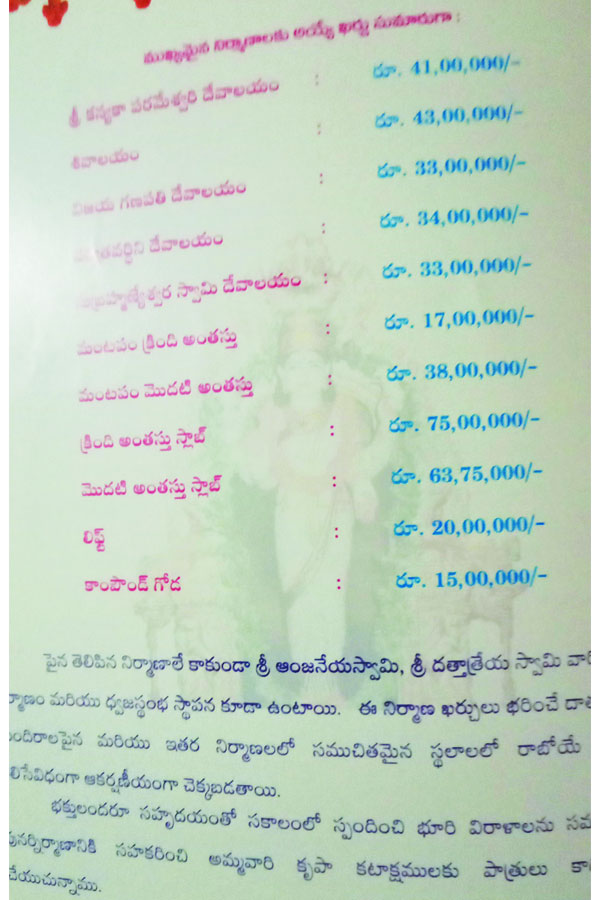 ముఖ్యమైన నిర్మాణాలకు అయ్యే ఖర్చు సుమారుగా :
శ్రీ కన్యకా పరమేశ్వరి దేవాలయం : రూ. 41,00,000/-
శివాలయం : రూ. 43,00,000/-
విజయ గణపతి దేవాలయం : రూ. 33,00,000/-
దేవాలయం : రూ. 34,00,000/-
సుబ్రహ్మణ్యేశ్వర స్వామి దేవాలయం : రూ. 33,00,000/-
మంటపం క్రింది అంతస్తు : రూ. 17,00,000/-
మంటపం మొదటి అంతస్తు : రూ. 38,00,000/-
క్రింది అంతస్తు స్లాబ్ : రూ. 75,00,000/-
మొదటి అంతస్తు స్లాబ్ : రూ. 63,75,000/-
లిఫ్ట్ : రూ. 20,00,000/-
కాంపౌండ్ గోడ : రూ. 15,00,000/-
పైన తెలిపిన నిర్మాణాలే కాకుండా శ్రీ ఆంజనేయస్వామి, శ్రీ దత్తాత్రేయ స్వామి
మరియు ధ్వజస్థంభ స్థాపన కూడా ఉంటాయి. ఈ నిర్మాణ ఖర్చులు భరించే
మరియు ఇతర నిర్మాణలలో సముచితమైన స్థలాలలో రాబోయే
ఆకర్షణీయంగా చెక్కబడతాయి.
భక్తులందరూ సహృదయంతో సకాలంలో స్పందించి భూరి విరాళాలను
పునర్నిర్మాణానికి సహకరించి అమ్మవారి కృపా కటాక్షములకు పాత్రులు